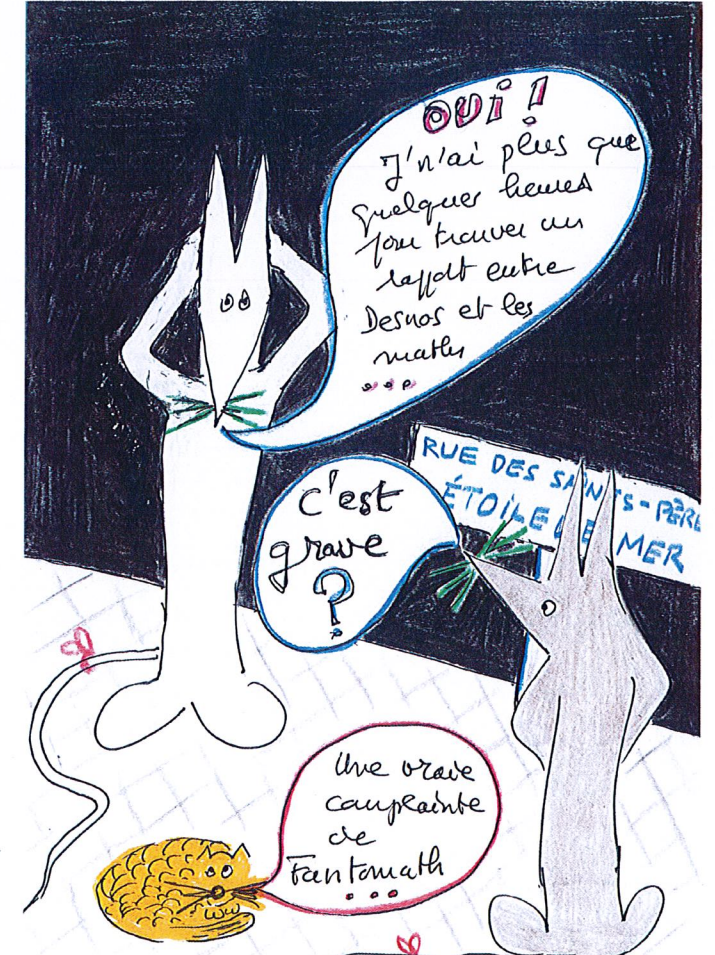 OUI !
J'n'ai plus que
quelques heures
pour trouver un
rapport entre
Desnos et les
maths
...
RUE DES SAINTS-PÈRE
ÉTOILE DE MER
C'est
grave
?
Une vraie
complainte
de
Fantomath
...